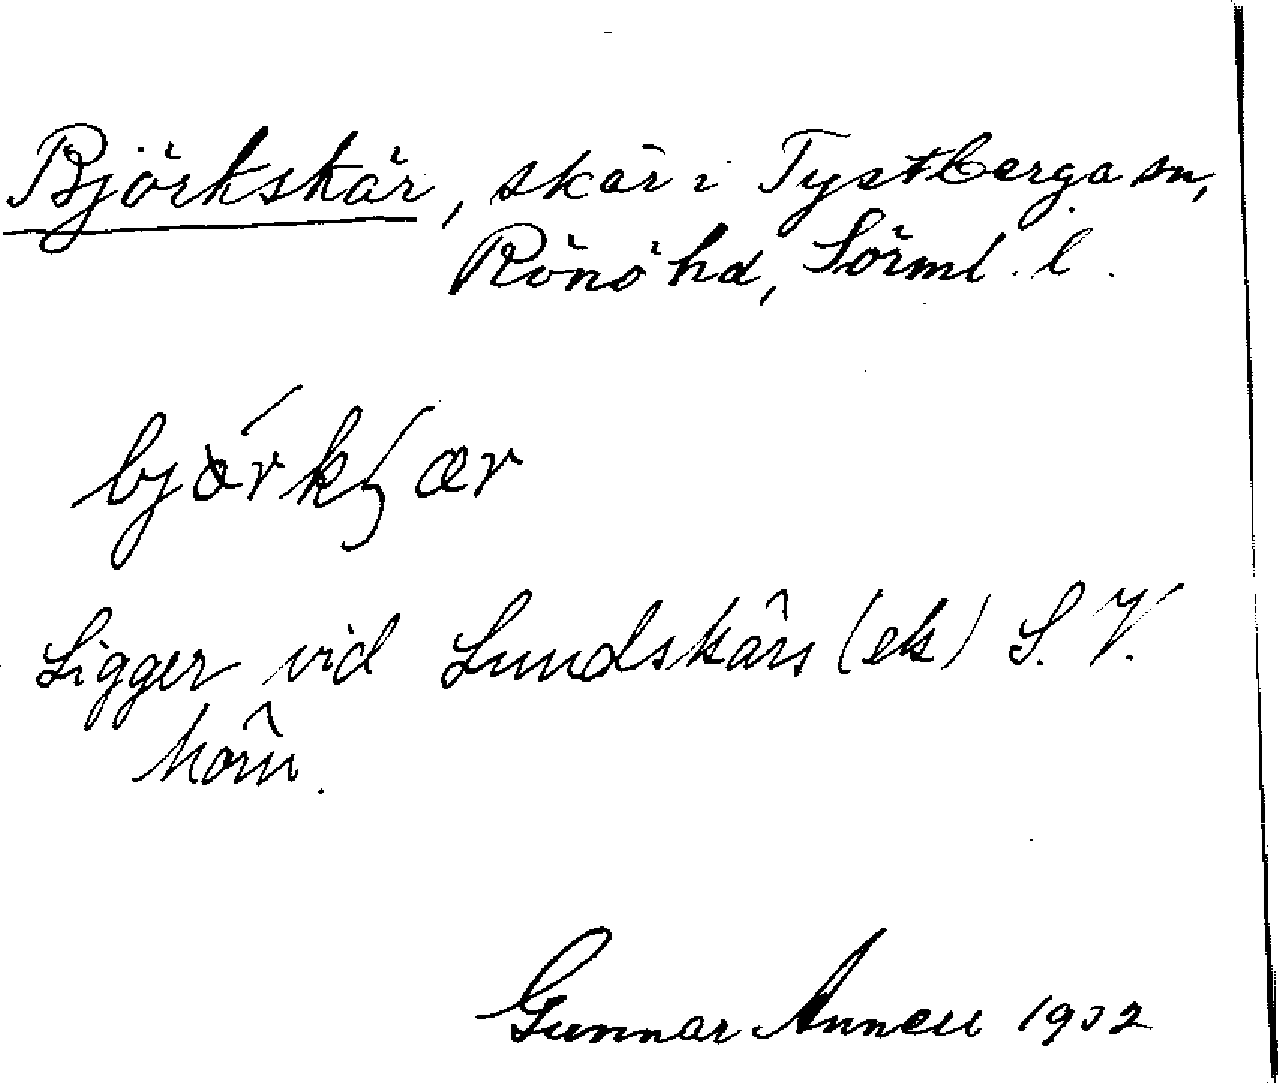 Björkskär, skär i Tystberga sn,
Rönö hd, Sörml. l.
bjørkʃær
Ligger vid Lundskärs (ek) S. V.
hörn.
Gunnar Annell 1932